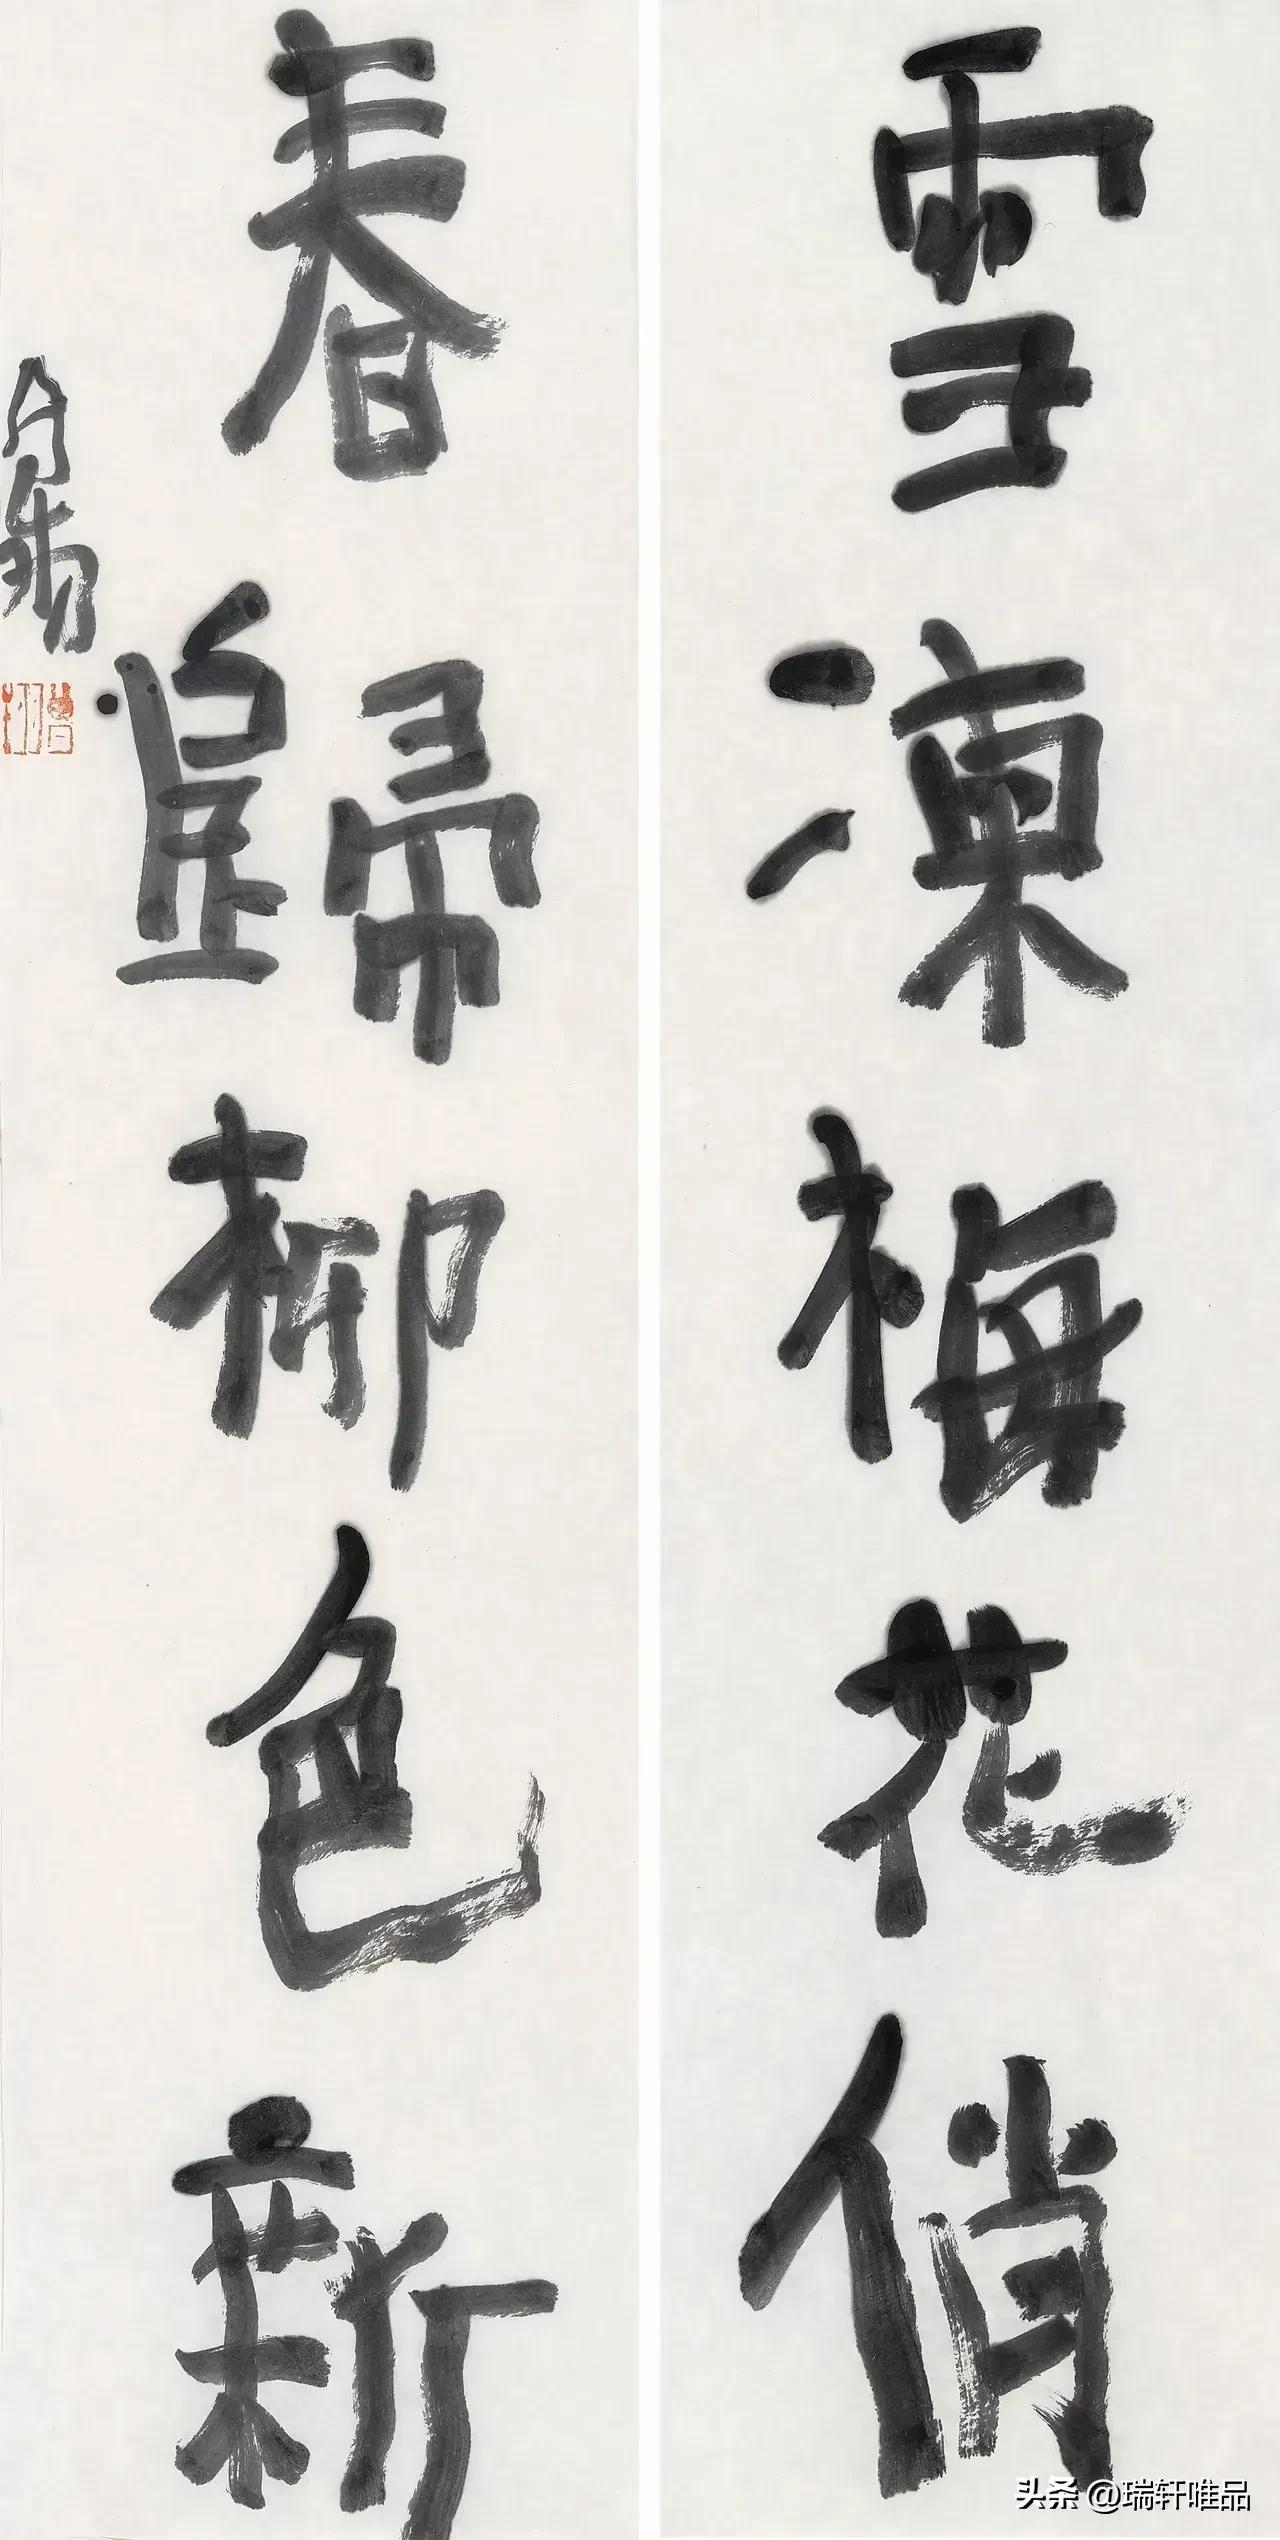 雪凍梅花俏
春歸柳色新
头条 @瑞轩唯品